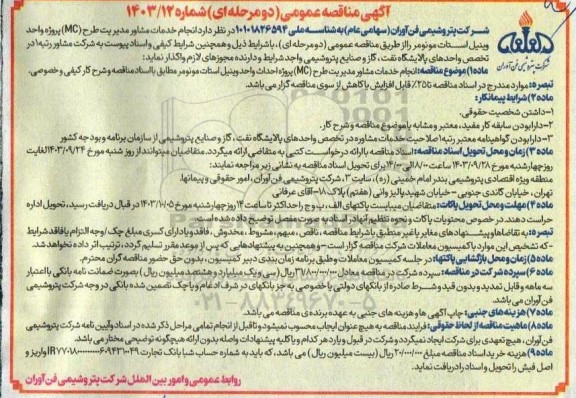 آگهی مناقصه عمومی (دو مرحله ای) شماره ۱۴۰۳/۱۲
شرکت پتروشیمی فن آوران (سهامی عام) به شناسه ملی ۱۰۱۰۱۸۳۶۵۹۲ در نظر دارد انجام خدمات مشاور مدیریت طرح (MC) پروژه واحد
وینیل استات مونومر را از طریق مناقصه عمومی (دو مرحله ای)، با شرایط ذیل و همچنین شرایط کیفی و اسناد پیوست به شرکت مشاور رتبه ۱ در
تخصص واحدهای پالایشگاه نفت، گاز و صنایع پتروشیمی واجد شرایط و دارنده مجوزهای لازم واگذار نماید:
ماده۱) موضوع مناقصه: انجام خدمات مشاور مدیریت طرح (MC) پروژه احداث واحد وینیل استات مونومر مطابق با اسناد مناقصه و شرح کار کیفی و خصوصی.
تبصره: موارد مندرج در اسناد مناقصه تا ۲۵٪ قابل افزایش یا کاهش از سوی مناقصه گزار می باشد.
ماده۲) شرایط پیمانکار:
۱-داشتن شخصیت حقوقی.
۲-دارا بودن سابقه کار مفید، معتبر و مشابه با موضوع مناقصه و شرح کار.
۳-دارا بودن گواهینامه معتبر رتبه ۱ صلاحیت خدمات مشاوره در تخصص واحدهای پالایشگاه نفت، گاز و صنایع پتروشیمی از سازمان برنامه و بودجه کشور
ماده ۳) زمان و محل تحویل اسناد مناقصه: اسناد مناقصه با ارائه درخواست کتبی به متقاضی ارائه میگردد. متقاضیان میتوانند از روز شنبه مورخ ۱۴۰۳/۰۹/۲۴ لغایت
روز چهارشنبه مورخ ۱۴۰۳/۰۹/۲۸ از ساعت ۸:۰۰ الی ۱۴:۰۰ برای تحویل اسناد مناقصه به نشانی زیر مراجعه نمایند:
منطقه ویژه اقتصادی پتروشیمی بندر امام خمینی (ره)، سایت ۳، شرکت پتروشیمی فن آوران، امور حقوقی و پیمانها.
تهران، خیابان گاندی جنوبی - خیابان شهید پالیزوانی (هفتم) پلاک ۱۸- آقای عرفانی
ماده۴) مهلت و محل تحویل پاکات: متقاضیان میبایست پاکتهای الف، ب و ج را حداکثر تا ساعت ۱۴ روز چهارشنبه مورخ ۱۴۰۳/۱۰/۰۵ در قبال دریافت رسید، تحویل اداره
حراست دهند. در خصوص محتویات پاکات و نحوه تنظیم آنها در اسناد به صورت مفصل توضیح داده شده است.
تبصره: به تقاضاها و پیشنهادهای مغایر با غیر منطبق با شرایط مناقصه، ناقص، مبهم، مشروط، مخدوش، فاقد و یا دارای کسری مبلغ چک/وجه التزام یا فاقد شرایط
-که تشخیص این موارد با کمیسیون معاملات شرکت مناقصه گزار است- و همچنین به پیشنهادهایی که پس از موعد مقرر تسلیم گردد، ترتیب اثر داده نخواهد شد.
ماده۵) زمان و محل بازگشایی پاکتها: در جلسه کمیسیون معاملات و طبق برنامه زمان بندی دبیر کمیسیون، بدون حق حضور مناقصه گران محترم.
ماده۶) سپرده شرکت در مناقصه: سپرده شرکت در مناقصه معادل ۳۱/۸۰۰/۰۰۰/۰۰۰ ریال (سی و یک میلیارد و هشتصد میلیون ریال) بصورت ضمانت نامه بانکی با اعتبار
سه ماهه و قابل تمدید و بدون قید و شرط صادره از بانکهای دولتی یا خصوصی به جز بانکهای در شرف ادغام و یا چک تضمین شده بانکی در وجه شرکت پتروشیمی
فن آوران می باشد.
ماده۷) هزینه های جنبی: چاپ آگهی ها و هزینه های جنبی به عهده برنده ی مناقصه می باشد.
ماده۸) ماهیت مناقصه از لحاظ حقوقی: فرایند مناقصه به هیچ عنوان ایجاب محسوب نمیشود و تا قبل از انجام تمامی مراحل ذکر شده در اسناد و آیین نامه شرکت پتروشیمی
فن آوران، هیچ تعهدی برای شرکت ایجاد نمیگردد و شرکت در قبول و یا رد هر کدام و یا کلیه پیشنهادات واصله بدون ارائه هیچگونه توضیحی مختار می باشد.
ماده۹) هزینه خرید اسناد مناقصه مبلغ ۲۰/۰۰۰/۰۰۰ ریال (بیست میلیون ریال) می باشد، که باید به شماره حساب شبا بانک تجارت واریز و
اصل فیش را تحویل و اسناد را دریافت نماید.
روابط عمومی و امور بین الملل شرکت پتروشیمی فن آوران
شرکت پتروشیمی فن آوران
۰۲۱-۸۸۳۴۹۶۷۰-۵